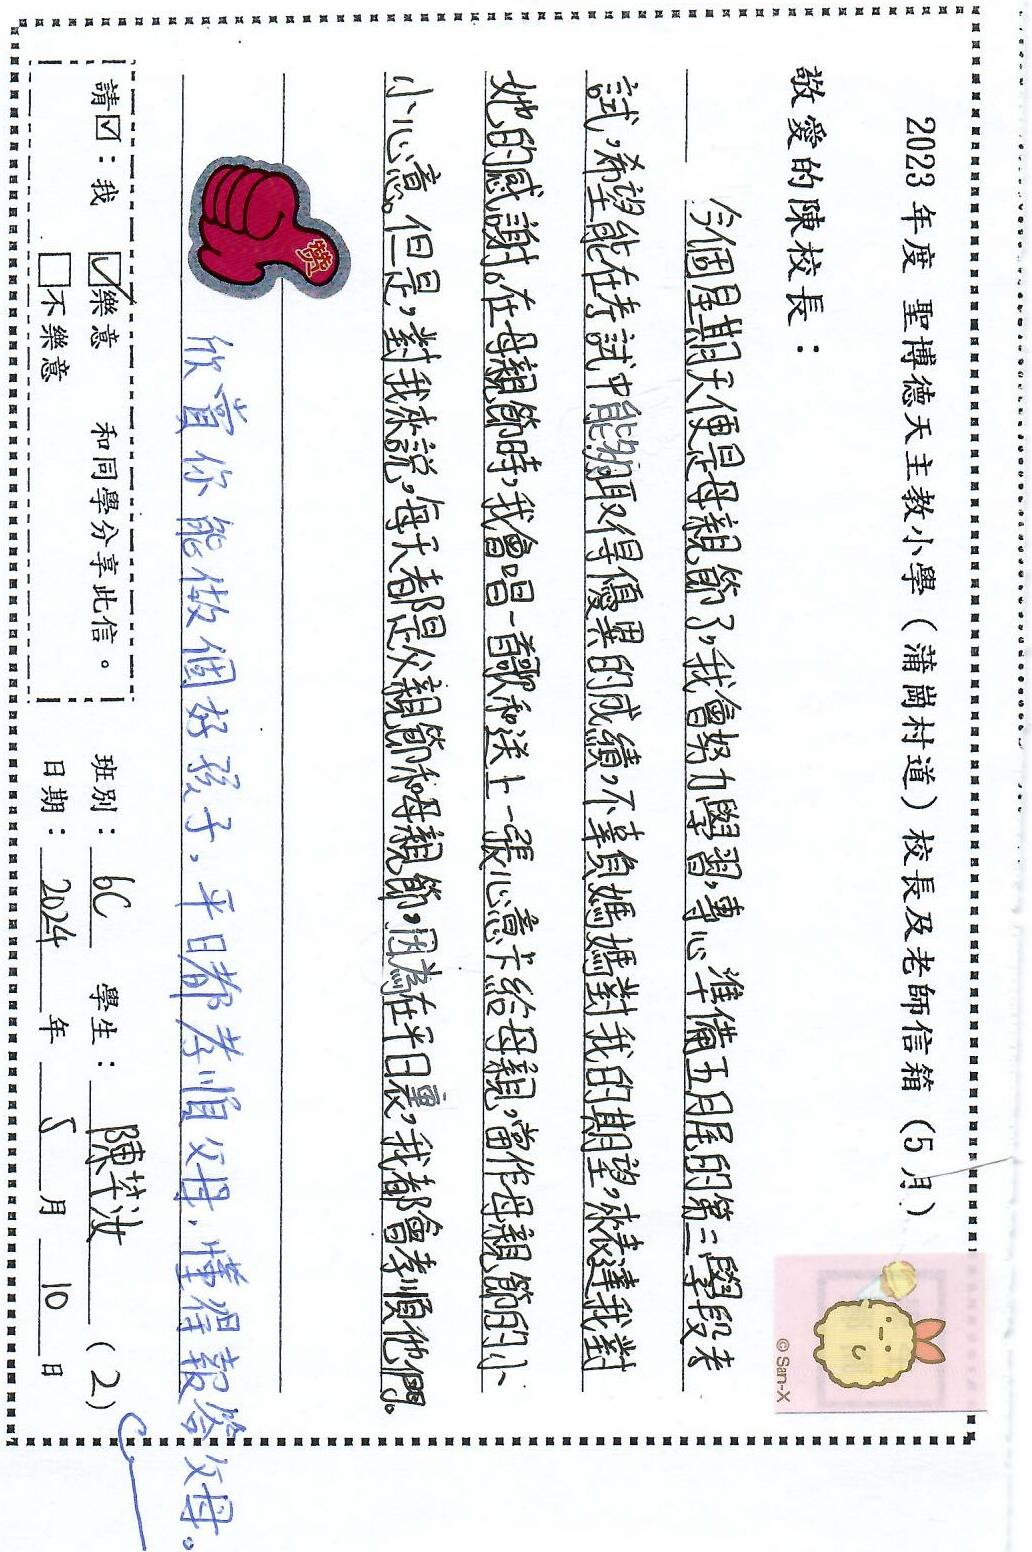 2023 年度 聖博德天主教小學（蒲崗村道）校長及老師信箱（5 月）
敬愛的陳校長：
今個星期天便是母親節了，我會努力學習，專心準備五月尾的第三學段考
試，希望能在考試中能夠取得優異的成績，不辜負媽媽對我的期望，來表達我對
她的感謝。在母親節時，我會唱一首歌和送上一張心意卡給母親，當作母親節的小
小心意。但是，對我來說，每天都是父親節和母親節，因為在平日裏，我都會孝順他們。
讚
欣賞你能做個好孩子，平日都孝順父母，懂得報答父母。
請☑：我 ☑樂意 和同學分享此信。
☐不樂意
班別：6C 學生：陳芊汝（2）
日期：2024 年 5 月 10 日
© San-X